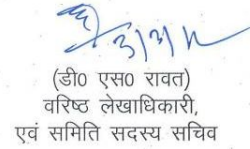 (डी0 एस0 रावत)
वरिष्ठ लेखाधिकारी,
एवं समिति सदस्य सचिव